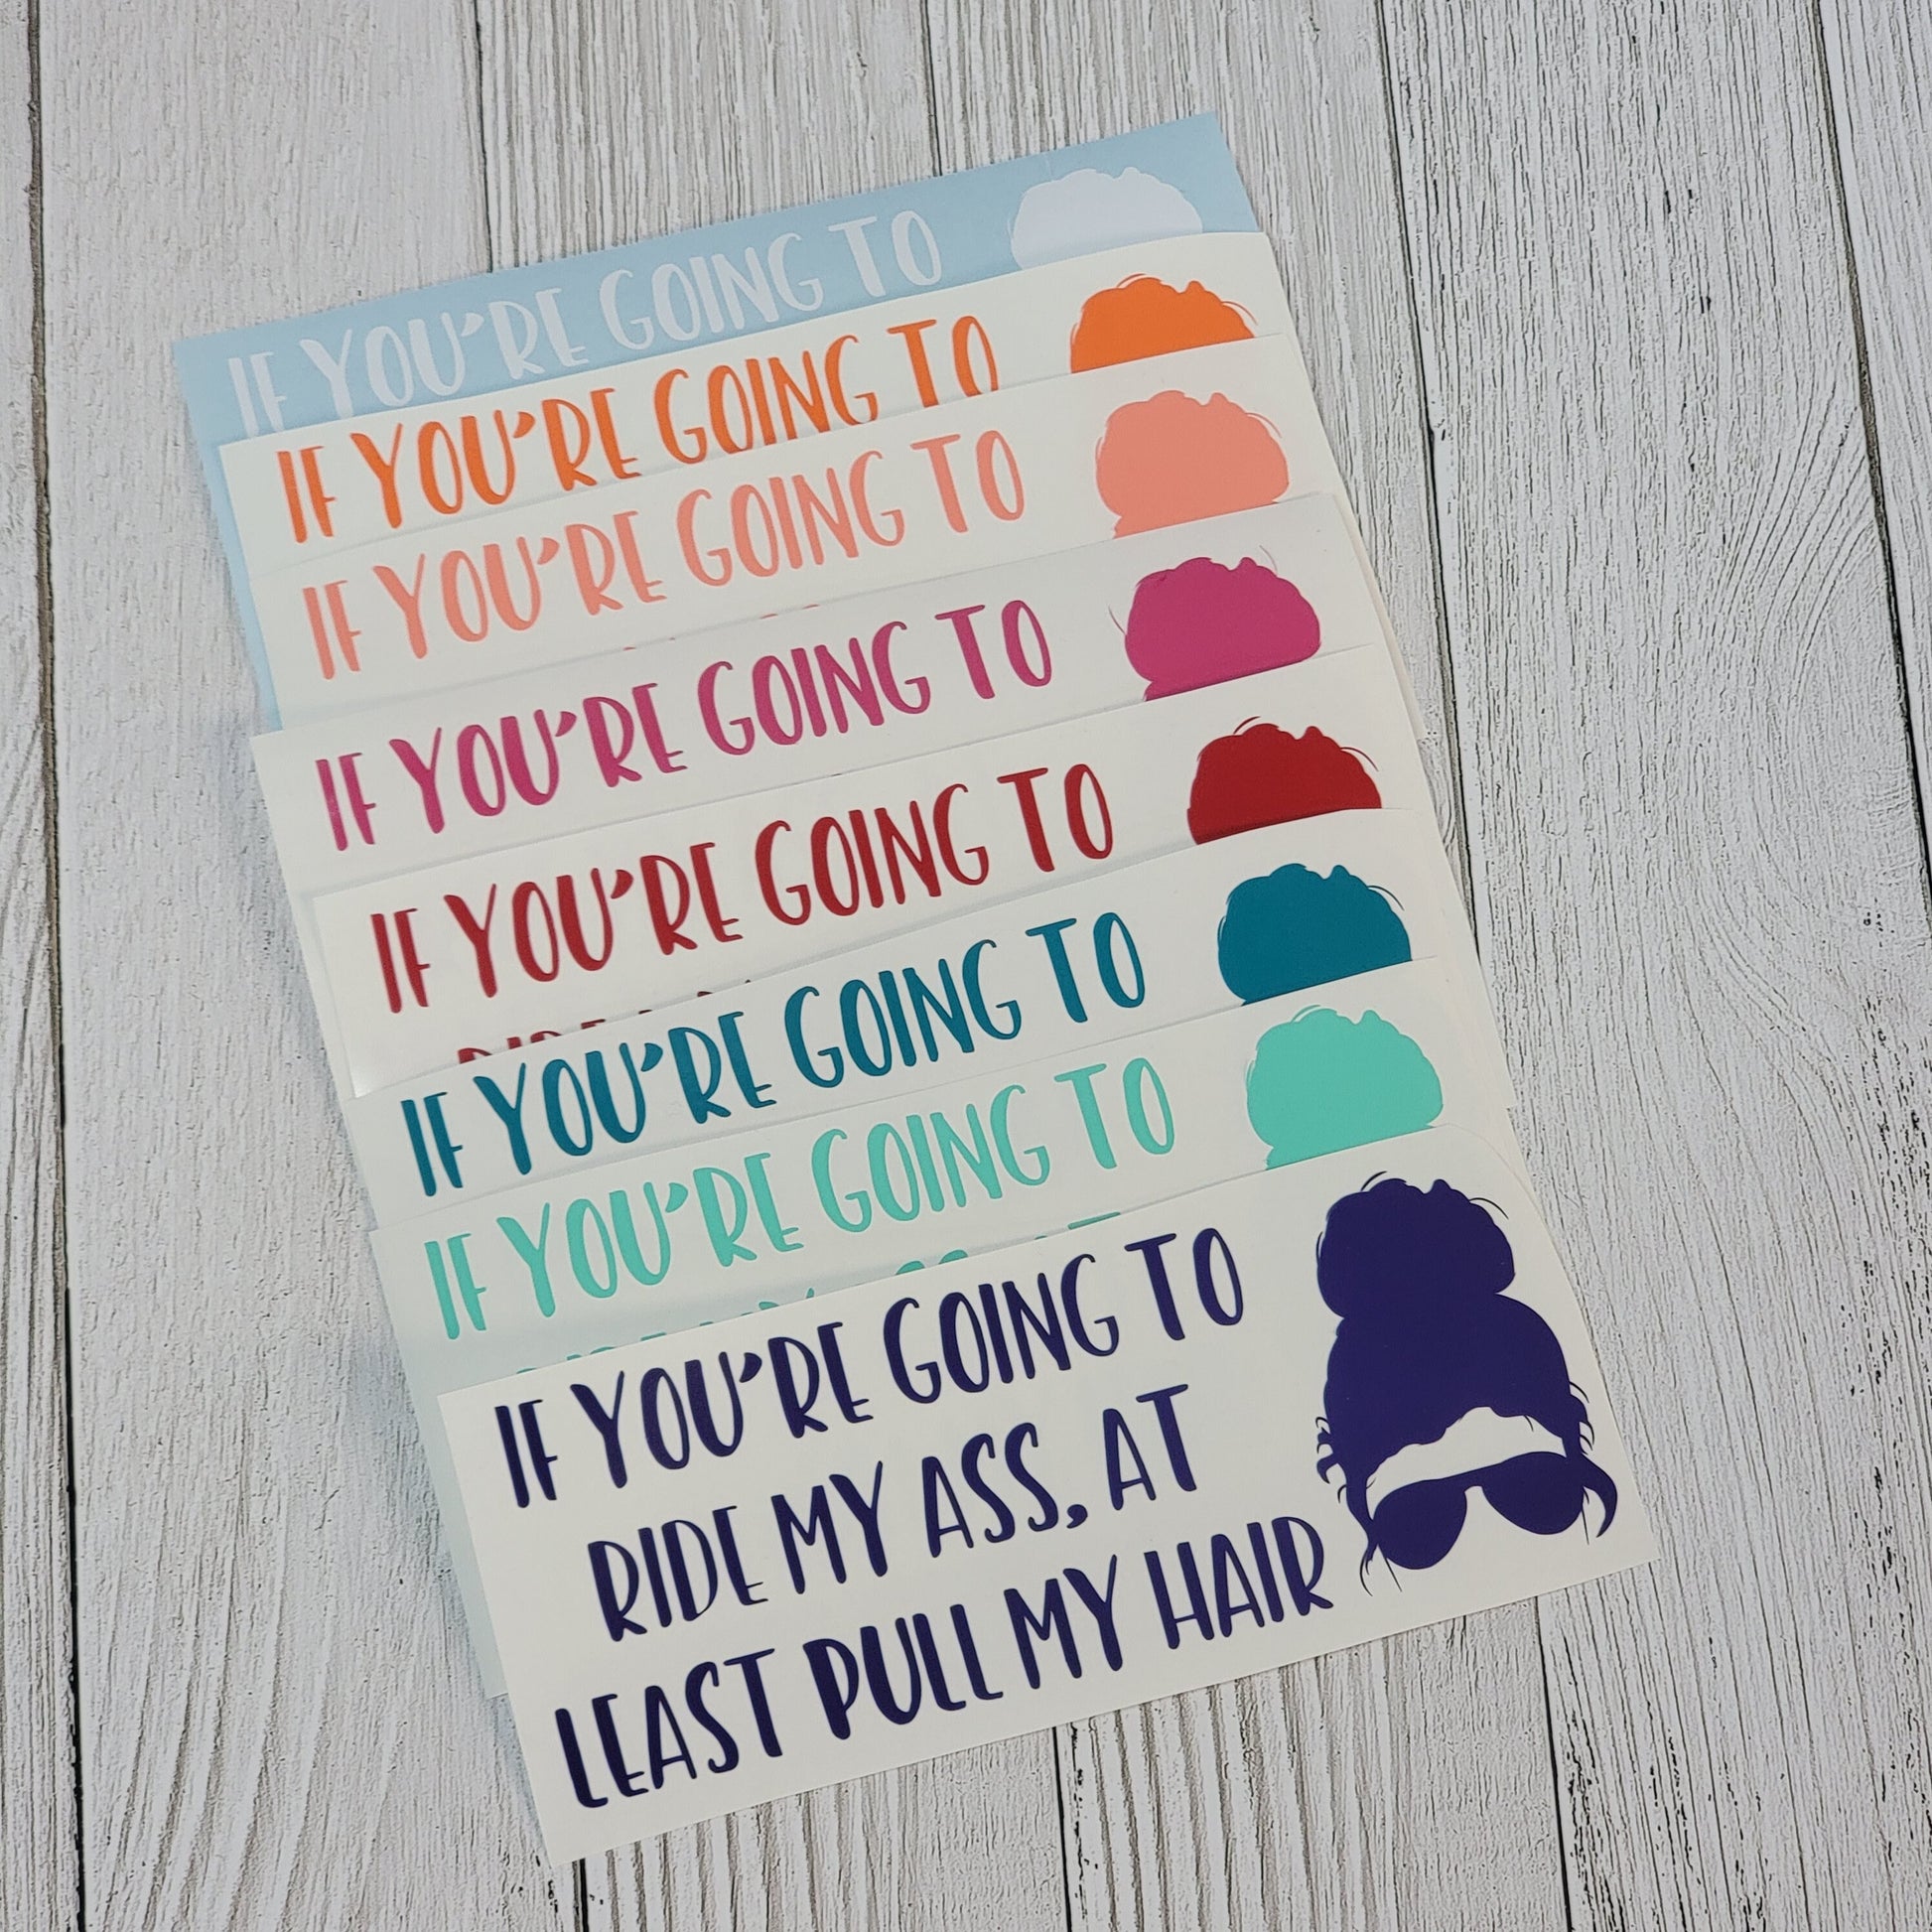 IF YOU'RE GOING TO
IF YOU'RE GOING TO
IF YOU'RE GOING TO
IF YOU'RE GOING TO
IF YOU'RE GOING TO
IF YOU'RE GOING TO
IF YOU'RE GOING TO
IF YOU'RE GOING TO
RIDE MY ASS, AT
LEAST PULL MY HAIR